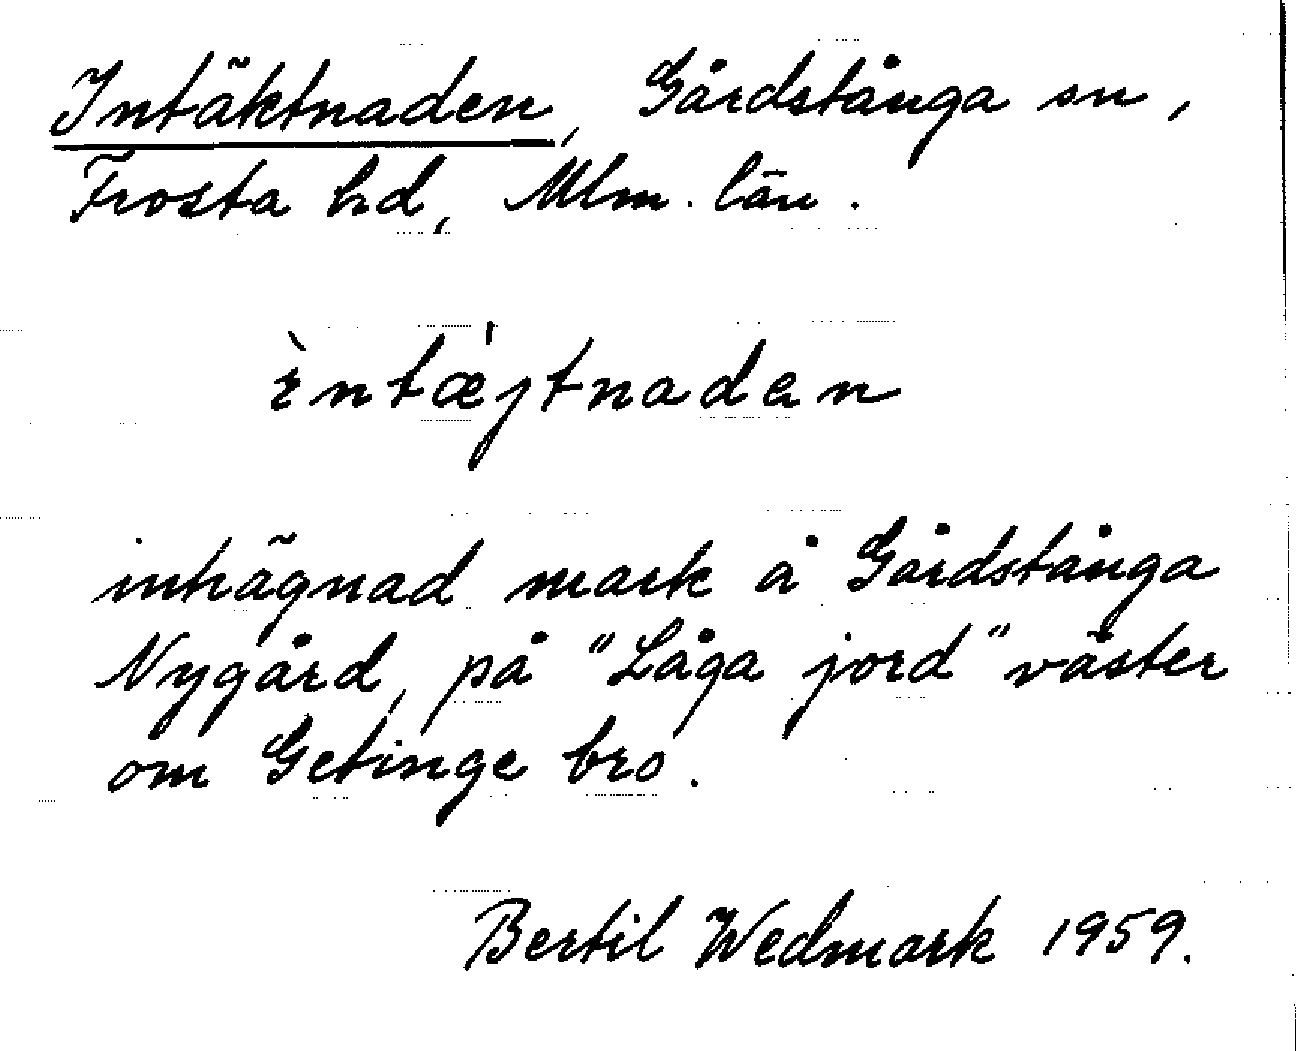 Intäktnaden, Gårdstånga sn,
Frosta hd, Mlm. län.
ìntæ̍jtnaden
inhägnad mark å Gårdstånga
Nygård, på "Låga jord" väster
om Getinge bro.
Bertil Wedmark 1959.